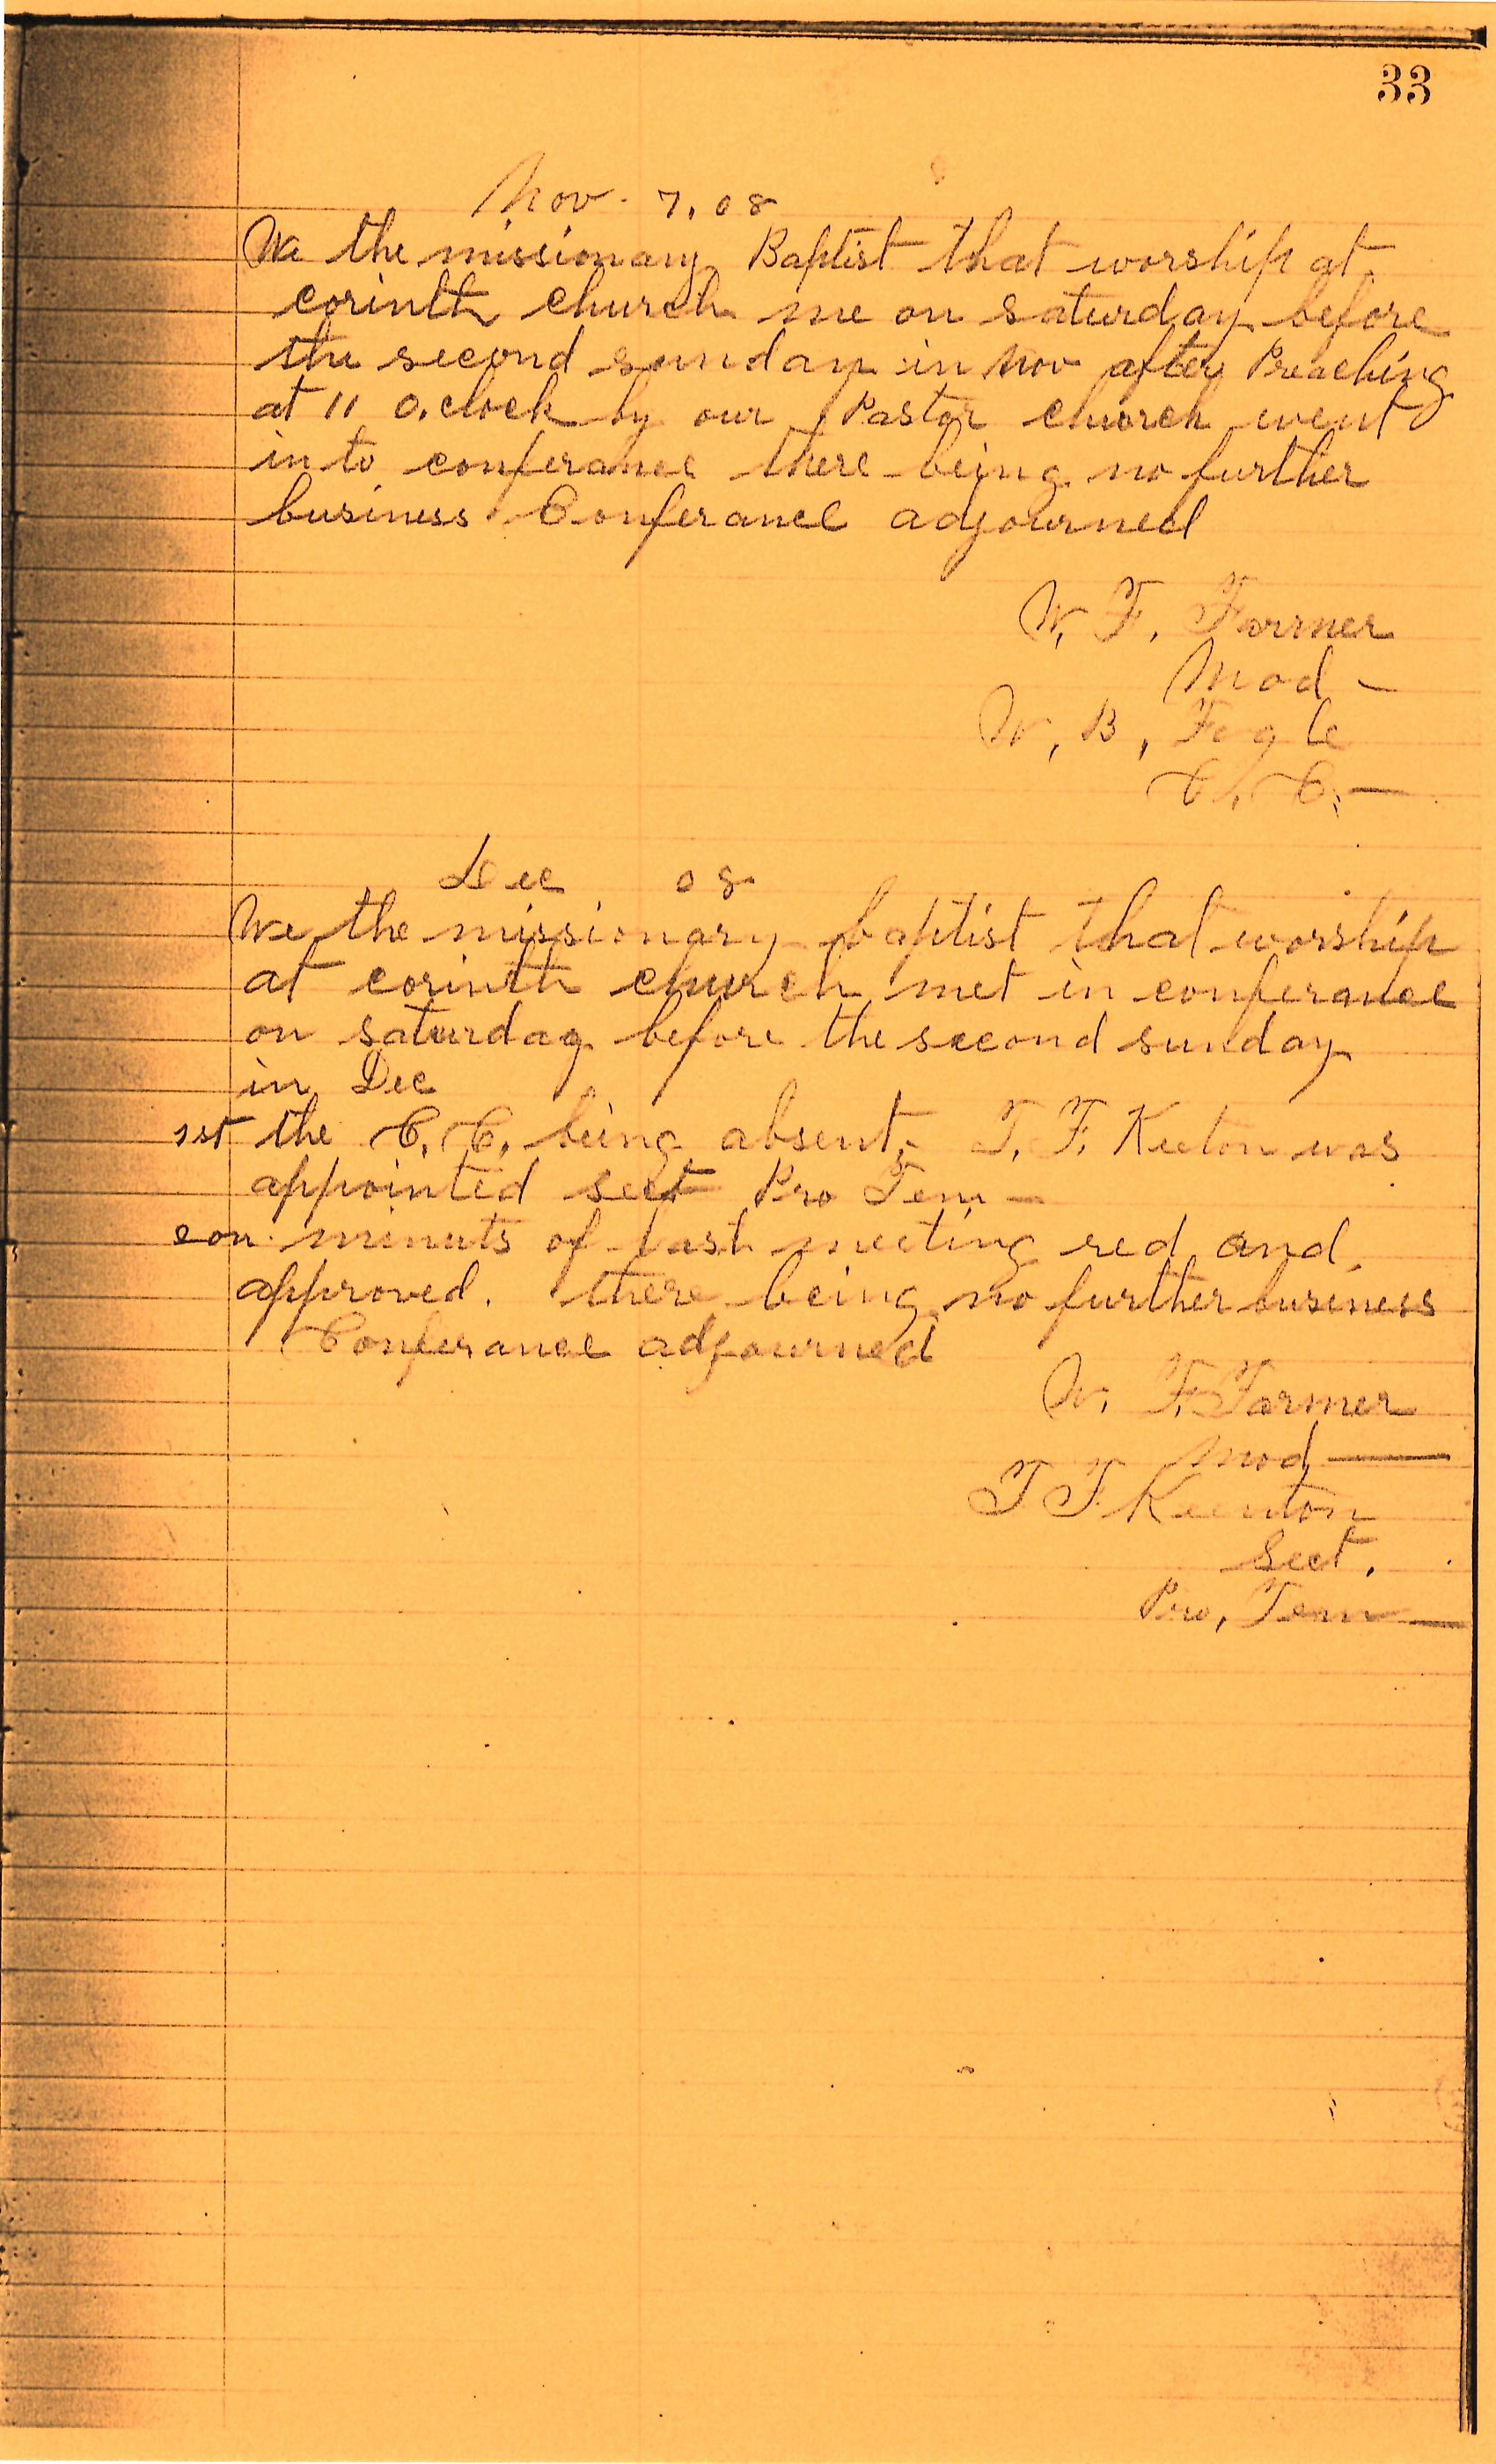 33
Nov. 7, 08
We the missionary Baptist that worship at
corinth church me on saturday before
the second sunday in Nov after Preaching
at 11 O,clock by our Pastor church went
in to conferance there being no further
business Conferance adjourned
W. F. Farmer
Mod -
W, B, Fogle
C. C. -
Dec 08
We the missionary baptist that worship
at corinth church met in conferance
on saturday before the second sunday
in Dec
1st the C. C. being absent, T. F. Keeton was
appointed sect Pro Tem -
con. minuts of last meeting red and
approved. there being no further business
Conferance adjourned
W. F. Farmer
Mod -
T F. Keenton
Sect.
Pro, Tem -